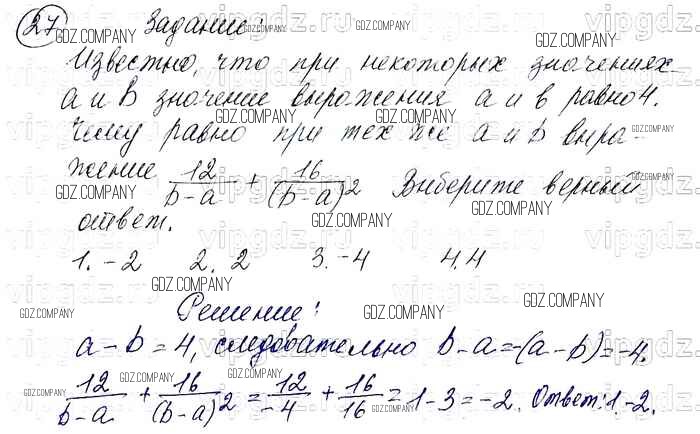 27 Задание:
Известно, что при некоторых значениях
a и b значение выражения a и b равно 4.
Чему равно при тех же a и b выра-
жение 12/(b-a) + 16/(b-a)² Виберите верный
ответ.
1. -2 2. 2 3. -4 4. 4
Решение:
a-b=4, следовательно b-a=-(a-b)=-4.
12/(b-a) + 16/(b-a)² = 12/-4 + 16/16 = 1-3 = -2. Ответ: 1-2.